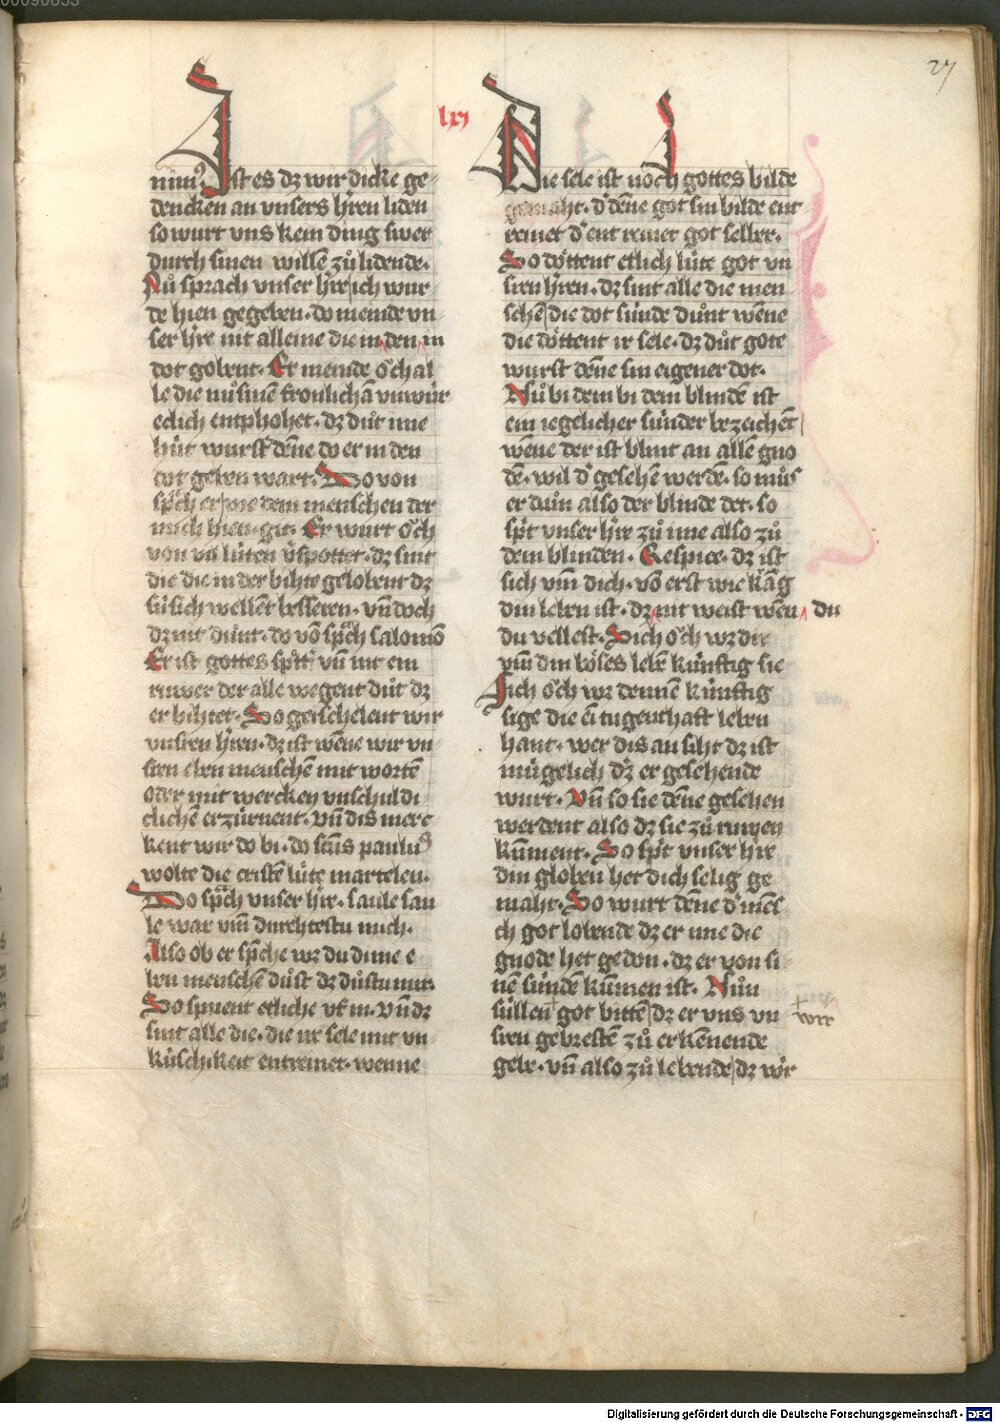 00090853
27
lxj
nimꝰ. Ist es dz wir dicke ge
dencken an vnsers h̄ren liden
so wurt vns kein ding swer
durch sinen willē zů lidende.
Nů sprach vnser h̄re ich wur
de hien gegeben. do meinde vn
ser h̄re nit alleine die in den in
dot gobent. Er meinde ǒch al
le die můsinē fronlichā vnwúr
eclich entphohet. dz důt ime
hút wurst dēne do er in den
dot geben wart. Do von
sp̄ch er we dem menschen der
mich hien git. Er wurt ǒch
von vil lúten v̄spottet. dz sint
die die in der bihte gelobent dz
sú sich wellēt besseren. vn̄ doch
dz nit důnt. do vō sp̄ch salomō
Er ist gottes spötter vn̄ nit ein
ruwer der alle wegent důt dz
er bihtet. So geischelent wir
vnsren h̄ren. dz ist wēne wir vn
sren eben menschē mit wortē
oder mit wercken vnschuldi
clichē erzúrnent. vn̄ dis merc
kent wir do bi. do sc̄us pauluꝰ
wolte die cristē lúte martelen.
Do sp̄ch vnser h̄re. saule sau
le war vm̄ durehtestu mich.
Also ob er sp̄che wz du dime e
ben menschē důst dz důstu mir.
So spuent etliche vf in. vn̄ dz
sint alle die. die ire sele mit vn
kúschikeit entreinet. wenne
Die sele ist noch gottes bilde
gemaht. d dēne got sin bilde ent
reinet d entreinet got selber.
So döttent etlich lúte got vn
sren h̄ren. dz sint alle die men
schē die dot súnde důnt wēne
die döttent ir sele. dz důt gote
wurst dēne sin eigener dot.
Nů bi dem bi dem blindē ist
ein iegelicher súnder bezeichēt
wēne der ist blint an allē gno
dē. wil d gesehē werdē. so můs
er důn also der blinde det. so
sp̄t vnser h̄re zů ime also zů
dem blinden. Respice. dz ist
sich vm̄ dich. vō erst wie krāg
din leben ist. dz nit weist wēn du
du vellest. Sich ǒch wz dir
vm̄ din böses lebē kúnftig sie
Sich ǒch wz dennē kúnftig
sige die ein tugenthaft leben
hant. wer dis an siht dz ist
múgelich dz er gesehende
wurt. Vn̄ so sie dēne gesehen
werdent also dz sie zů ruwen
kūment. So sp̄t vnser h̄re
din globen het dich selig ge
maht. So wurt dēne d mēs
ch got lobende dz er ime die
gnode het gedon. dz er von si
nē súndē kūmen ist. Nůn
súllen got bittē dz er vns vn
wir
sren gebrestē zů erkēnende
gebe. vn̄ also zů lebende dz wir
Digitalisierung gefördert durch die Deutsche Forschungsgemeinschaft - DFG